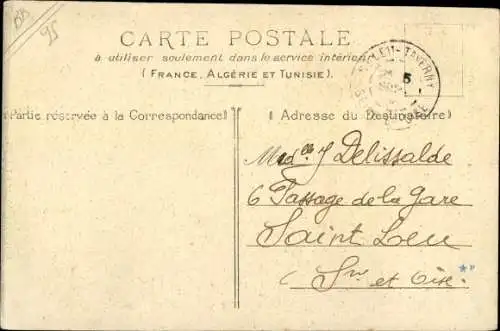 BB
95
CARTE POSTALE
à utiliser seulement dans le service intérieur
(FRANCE, ALGÉRIE ET TUNISIE).
ST LEU-TAVERNY
5
Partie réservée à la Correspondance
Adresse du Destinataire
Mad^elle J Delissalde
6 Passage de la Gare
Saint Leu
Sne et Oise